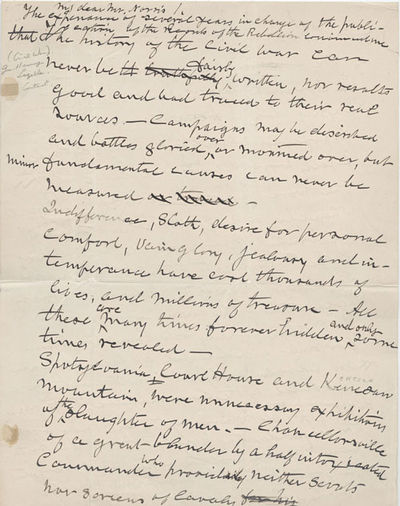 My dear Mr. Norris!
The experience of several years in charge of the publi-
cation of the Records of the Rebellion
that The history of the Civil War can
never be truthfully fairly written, nor results
good and bad traced to their real
sources — Campaigns may be described
and battles gloried over, or mourned over, but
minor fundamental causes can never be
measured —
Indifference, Sloth, desire for personal
comfort, vainglory, jealousy and in-
temperance have cost thousands of
lives, and millions of treasure — All
these are many times forever hidden, and only some
times revealed —
Spotsylvania Court House and Kenesaw
Mountain, were unnecessary exhibitions
of the slaughter of men. — Chancellorsville
of a great blunder by a half intoxicated
Commander who provided neither Scouts
nor screens of Cavalry for his